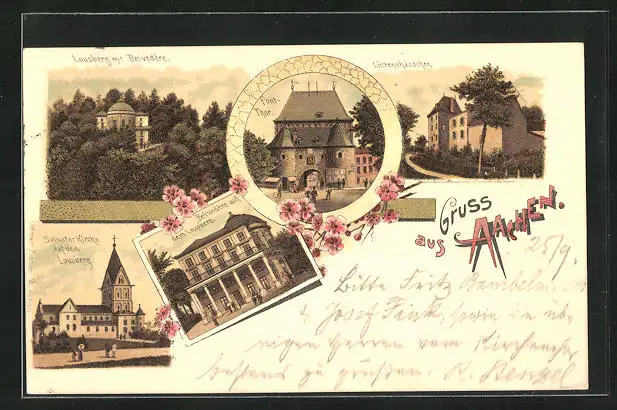 Lousberg mit Belvedère.
Pont-
Thor.
Linzenshäuschen
Salvator Kirche
auf dem
Lousberg.
Belvedère auf
dem Lousberg.
Gruss
aus AACHEN.
25/9.
Bitte Fritz
& Josef Fink, sowie die üb-
rigen Herren vom Kirchenchor
bestens zu grüßen. R. Stengel